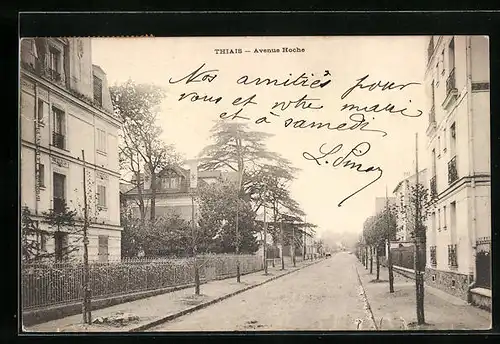 THIAIS – Avenue Hoche
Nos amitiés pour
vous et votre mari
et à samedi